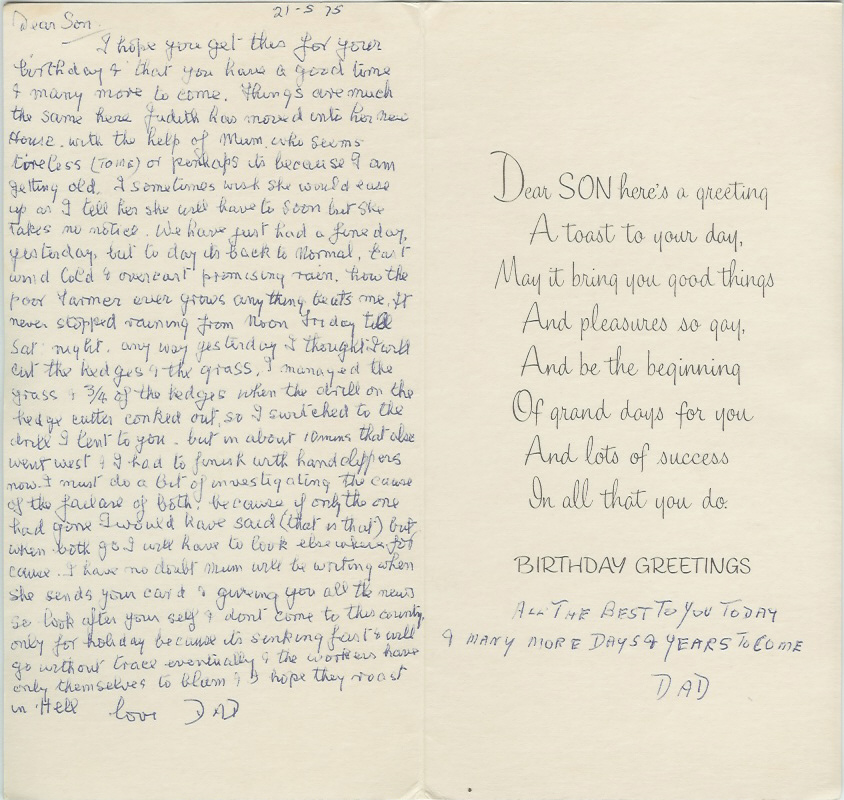 21-5 75
Dear Son.
I hope you get this for your
birthday & that you have a good time
& many more to come. Things are much
the same here Judith has moved into her new
House. with the help of Mum, who seems
tireless (TO ME) or perhaps its because I am
getting old. I sometimes wish she would ease
up as I tell her she will have to soon but she
takes no notice. We have just had a fine day,
yesterday, but to day its back to Normal. East
wind Cold & overcast promising rain. how the
poor farmer ever grows anything beats me. It
never stopped raining from Noon Friday till
Sat night. any way yesterday I thought I will
cut the hedges & the grass. I managed the
grass & 3/4 of the hedges when the drill on the
hedge cutter conked out, so I switched to the
drill I lent to you. but in about 10 mins that also
went west & I had to finish with handclippers
now. I must do a bit of investigating the cause
of the failure of both. because if only the one
had gone I would have said (that is that) but
when both go I will have to look elsewhere for
cause. I have no doubt Mum will be writing when
she sends your card & giving you all the news
so look after your self & dont come to this country,
only for holiday because its sinking fast & will
go without trace eventually & the workers have
only themselves to blame & I hope they roast
in Hell love DAD
Dear SON here's a greeting
A toast to your day,
May it bring you good things
And pleasures so gay,
And be the beginning
Of grand days for you
And lots of success
In all that you do.
BIRTHDAY GREETINGS
ALL THE BEST TO YOU TODAY
& MANY MORE DAYS & YEARS TO COME
DAD